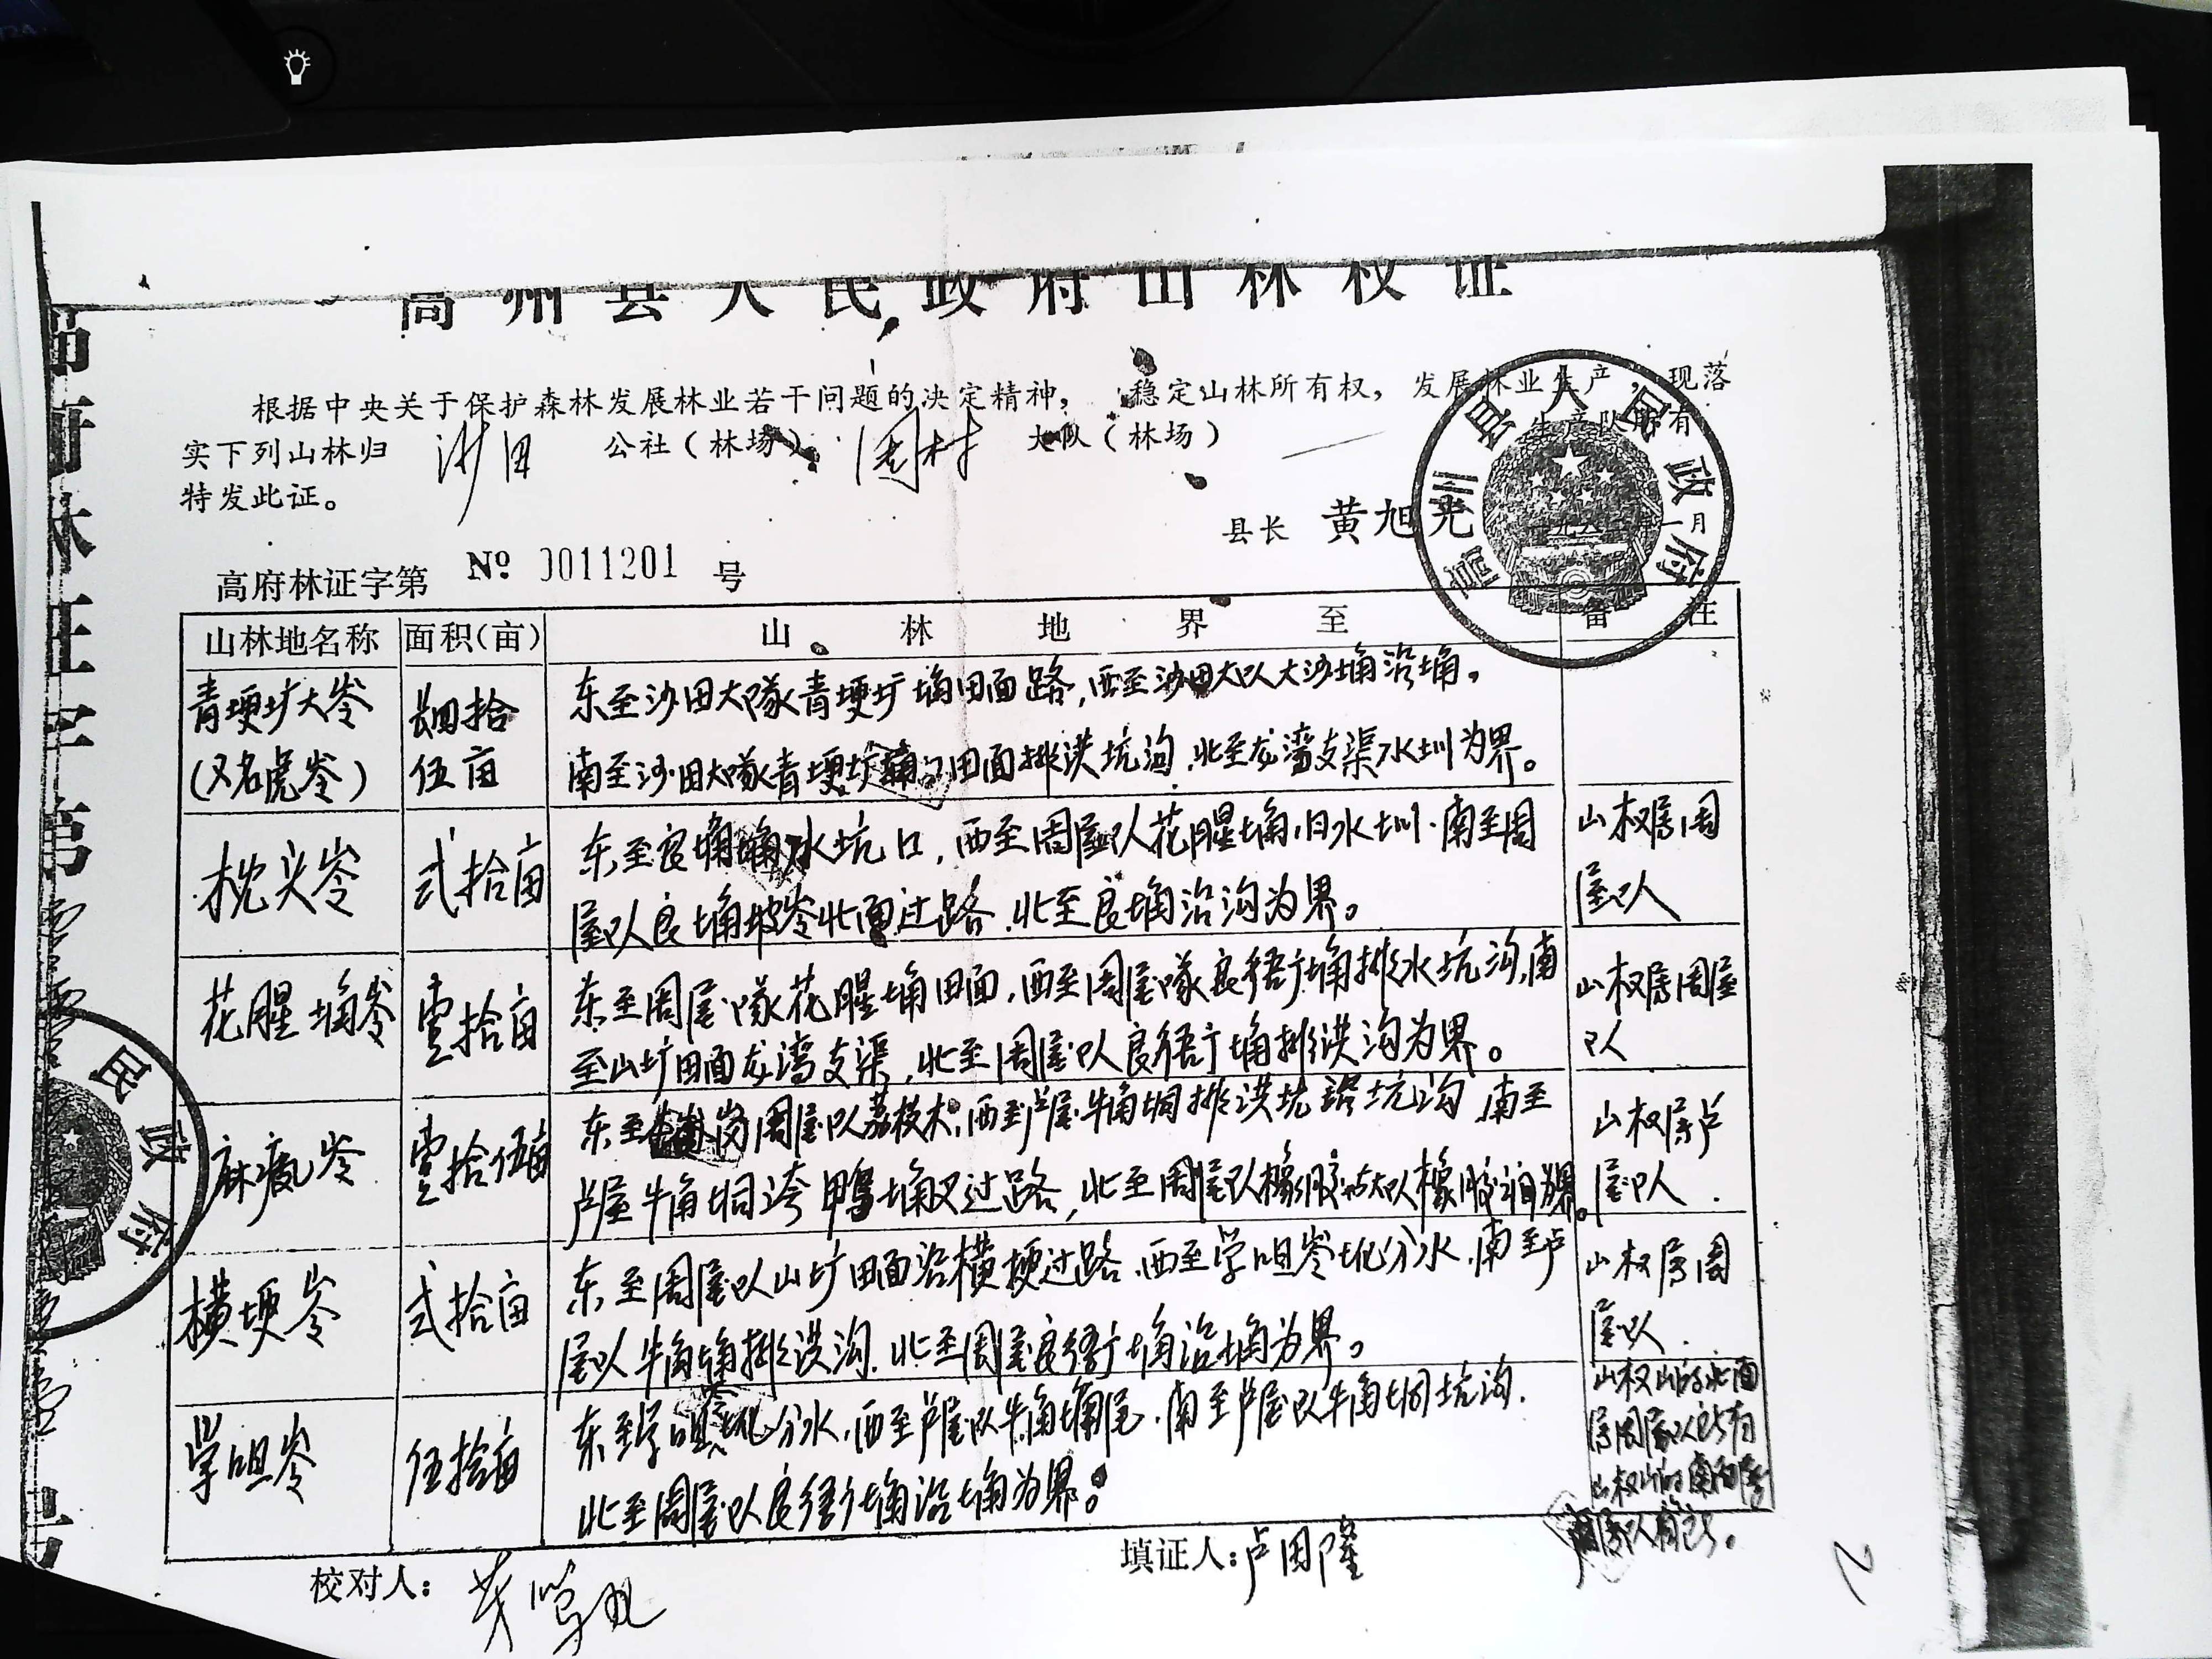 高州县人民政府山林权证
根据中央关于保护森林发展林业若干问题的决定精神，稳定山林所有权，发展林业生产，现落
实下列山林归 沙田 公社（林场） 周村 大队（林场） 生产队所有
特发此证。
县长 黄旭光
高府林证字第 № 0011201 号
高州县人民政府
山林地名称 面积(亩) 山林地界至 备注
青埂圹大岺 肆拾 东至沙田大队青埂圹埇田面路,西至沙田大队大沙埇沿埇。
(又名虎岺) 伍亩 南至沙田大队青埂圹 田面排洪坑沟,北至龙湾支渠水圳为界。
枕头岺 式拾亩 东至良埇 水坑口,西至周屋队花腥埇旧水圳.南至周 山权属周
屋队良埇坡岺北面过路.北至良埇沿沟为界。 屋队
花腥埇岺 壹拾亩 东至周屋队花腥埇田面,西至周屋队良 埇排水坑沟,南 山权属周屋
至山圹田面龙湾支渠,北至周屋队良 埇排洪沟为界。 队
麻疯岺 壹拾伍亩 东至 岗周屋队荔枝木,西至卢屋牛角垌排洪 坑沟.南至 山权属卢
卢屋牛角垌 鸭埇 过路,北至周屋队橡胶 大队橡胶 为界。 屋队.
横埂岺 式拾亩 东至周屋队山圹田面沿横埂过路.西至学咀岺 分水.南至卢 山权属周
屋队牛角埇排洪沟.北至周屋良 埇沿埇为界。 屋队.
学咀岺 伍拾亩 东至学咀岺 分水.西至卢屋队牛角埇尾.南至卢屋队牛角垌坑沟. 山权山的北面
北至周屋队良 埇沿埇为界。 属周屋队所有
山权山的南面
校对人：
填证人：卢田隆
民政府
2